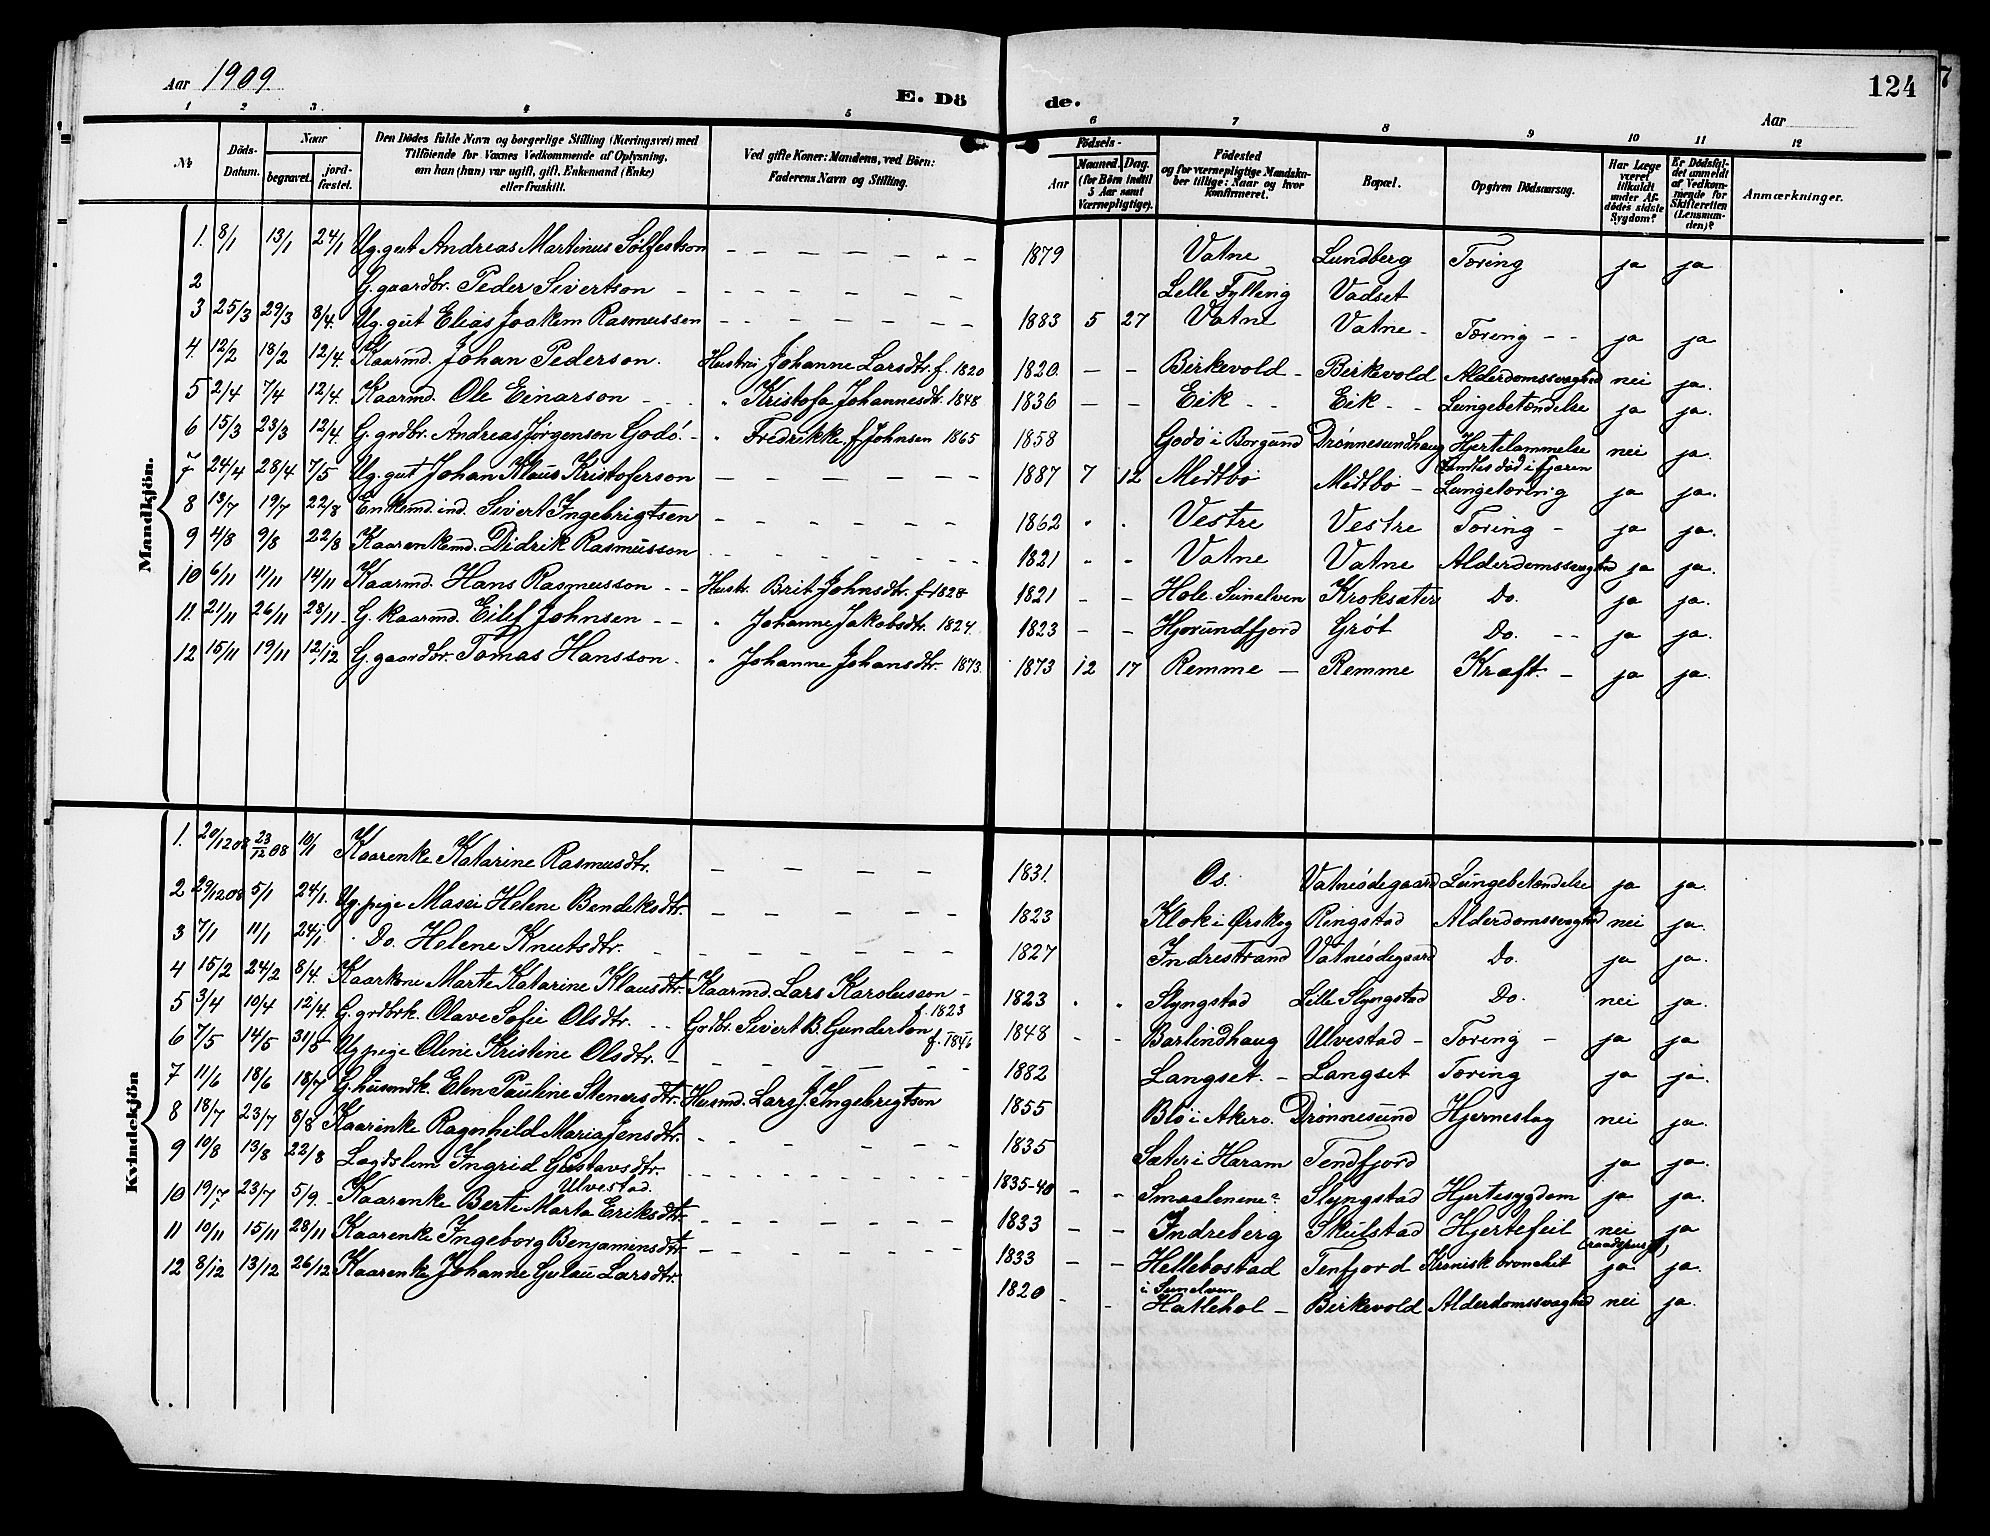 Aar 1909.
E. Dö de.
124
Aar
1 2 3. 4 5 6 7 8 9 10 11 12
№ Döds-Datum. Naar begravet. jord-fæstet. Den Dödes fulde Navn og borgerlige Stilling (Næringsvei) med Tilföiende for Voxnes Vedkommende af Oplysning, om han (hun) var ugift, gift, Enkemand (Enke) eller fraskilt. Ved gifte Koner: Mandens, ved Börn: Faderens Navn og Stilling. Födsels- Aar Maaned. Dag. (for Börn indtil 5 Aar samt Værnepligtige). Födested og for værnepligtige Mandskaber tillige: Naar og hvor konfirmeret. Bopæl. Opgiven Dödsaarsag. Har Læge været tilkaldt under Afdödes sidste Sygdom? Er Dödsfaldet anmeldt af Vedkommende for Skifteretten (Lensmanden)? Anmærkninger.
Mandkjön.
1. 8/1 13/1 24/1 Ug. gut Andreas Martinus Solfestson - - - - - - - 1879 Vatne Lundberg Tæring ja ja
2 G. gaardbr. Peder Sivertson - - - - - - - Lille Fylling Vadset
3 25/3 29/3 8/4. Ug. gut Elias Joakim Rasmussen - - - - - - - 1883 5 27 Vatne Vatne - Tæring - - ja ja
4. 12/2 18/2 12/4. Kaarmd. Johan Pederson. Hustru Johanne Larsdtr. f. 1820 1820. - - Birkevold - Birkevold Alderdomssvaghed nei ja.
5 2/4 7/4 12/4. Kaarmd. Ole Einarson - - - " Kristofa Johannesdtr. 1848 1836 - - Eik - - Eik - - Lungebetændelse ja ja.
6 15/3 23/3 12/4. G. grdbr. Andreas Jørgenson Godö. - " Fredrikke f. Johnsen 1865 1858 Godö i Borgund Drønnesundhaug Hjertelammelse nei ja.
Fandtes död i fjæren
7 24/4 28/4 7/5 Ug. gut Johan Klaus Kristoferson - - - - - - 1887 7 12 Midtbö Midtbö - Lungetæring ja ja.
8 13/7 19/7 22/8 Enkemd. ind. Sivert Ingebrigtsen - - - - - - - 1862 " . Vestre Vestre Tæring - ja ja.
9 4/8 9/8 22/8 Kaarenkemd. Didrik Rasmusson - - - - - - 1821 " . Vatne Vatne Alderdomssvaghed ja ja.
10 6/11 11/11 14/11 Kaarmd. Hans Rasmusson - - Hustr. Brit Johnsdtr. f. 1828 1821 - - Hole. Sunelven Kroksæter Do. ja ja.
11. 21/11 26/11 28/11 - G. kaarmd. Eilef Johnsen - - " Johanne Jakobsdtr. 1824. 1823 - - Hjørundfjord Grøt Do. - - ja ja.
12 15/11 19/11 12/12 G. gaardbr. Tomas Hansson. " Johanne Johansdtr. 1873. 1873 12 17 Remme - Remme Kræft. - ja ja.
Kvindekjön
1. 20/12 08 23/12 08 10/1 Kaarenke Katarine Rasmusdtr. - - - - 1831. Os. Vatneödegaard Lungebetændelse ja ja.
2 29/12 08 5/1 24/1. Ug. pige Massi Helene Bendeksdtr. - - - - - - 1823 Klok i Ørskog Ringstad Alderdomssvaghed nei ja.
3 7/1 11/1 24/1. " Do. Helene Knutsdtr. - - - - - - - 1827 Indrestrand Vatneödegaard Do. ja ja.
4 15/2 24/2 8/4. Kaarkone Marte Katarine Klausdtr. Kaarmd. Lars Karolusson - f. 1823 1823 " " Slyngstad Lille Slyngstad Do. nei ja.
5 3/4 10/4 12/4. G. grdbrk. Olave Sofie Olsdtr. - - Grdbr. Sivert B. Gunderson f. 1846 1848 - - Barlindhaug Ulvestad - Tæring - ja ja
6 7/5 14/5 31/5 Ug pige Oline Kristine Olsdtr. - - - - - - - 1882 Langset. - Langset Tæring ja ja.
7 11/6 18/6 18/7 G. husmdk. Elen Pauline Stenersdtr. Husmd. Lars J. Ingebrigtson 1855 Blö i Akerö. Drønnesund Hjerneslag nei ja.
8 18/7 23/7 8/8 Kaarenke Ragnhild Maria Jensdtr. - - - - - - 1835 Sæter i Haram Tendfjord ja ja.
9 10/8 13/8 22/8 Lægdslem Ingrid Gustavsdtr. Ulvestad. - - - - - - - 1835-40 - " Smaalenene? Slyngstad Hjertesygdom ja ja.
10 19/7 23/7 5/9. - Kaarenke Berte Marta Eriksdtr. - - - - - - - 1833 - - Indreberg Skulstad Hjertefeil nei (raadspurgt) ja
11 10/11 15/11 28/11 Kaarenke Ingeborg Benjaminsdtr. - - - - - - - 1833 - - Hellebostad i Sunelven Tenfjord Kronisk bronchit ja ja.
12 8/12 13/12 26/12 Kaarenke Johanne Gulau Larsdtr. 1820 - - Hatlehol - Birkevold Alderdomssvaghed nei ja.